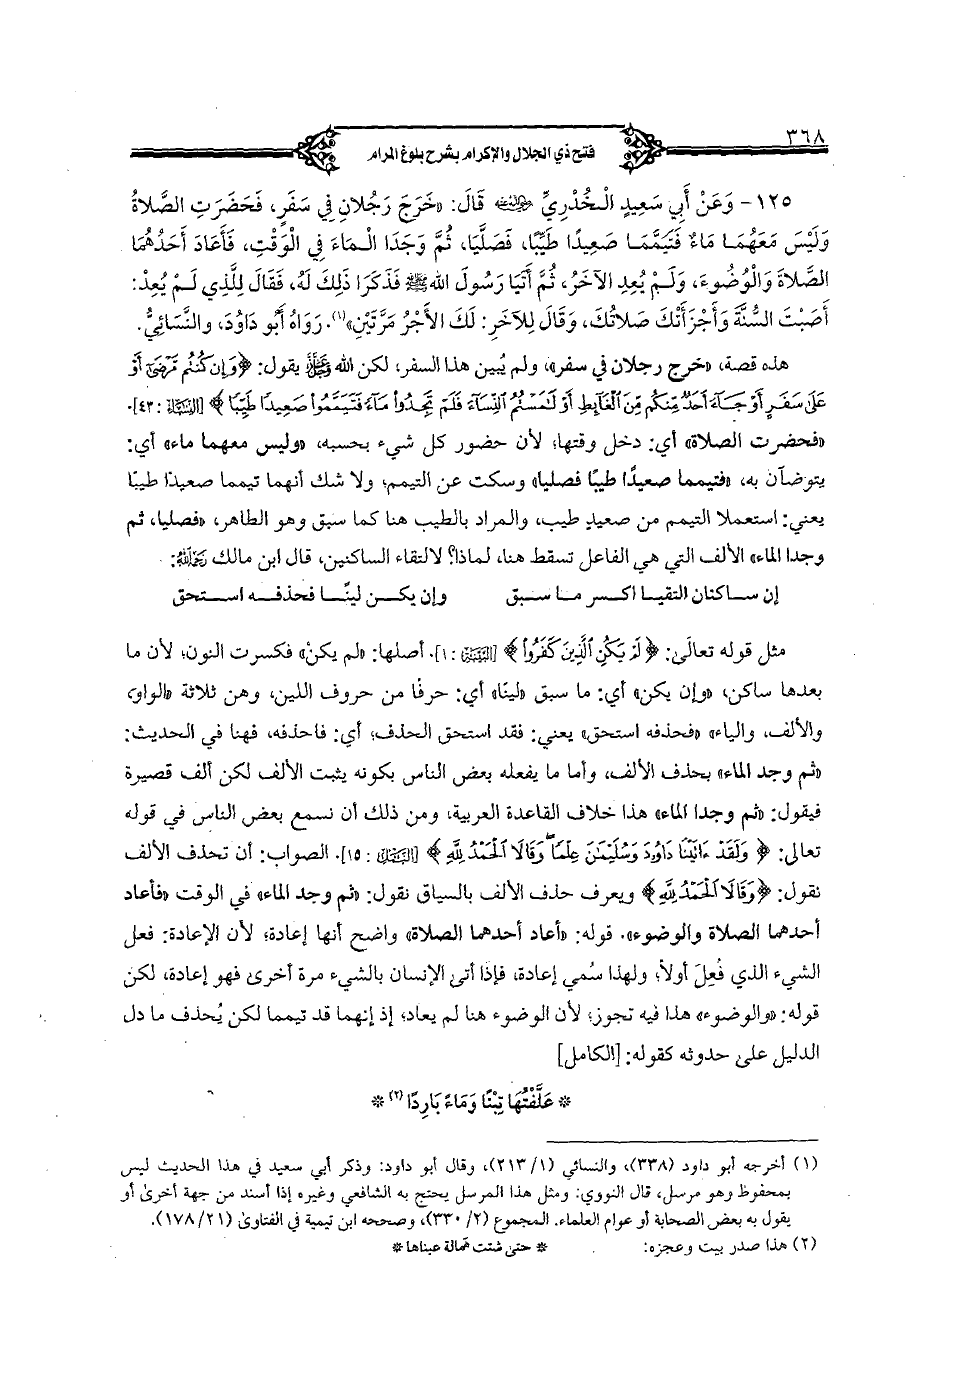 ٣٦٨
فتح ذي الجلال والإكرام بشرح بلوغ المرام
١٢٥- وَعَنْ أَبِي سَعِيدٍ الْخُدْرِيِّ رضي الله عنه قَالَ: «خَرَجَ رَجُلَانِ فِي سَفَرٍ، فَحَضَرَتِ الصَّلَاةُ
وَلَيْسَ مَعَهُمَا مَاءٌ فَتَيَمَّمَا صَعِيدًا طَيِّبًا، فَصَلَّيَا، ثُمَّ وَجَدَا الْمَاءَ فِي الْوَقْتِ، فَأَعَادَ أَحَدُهُمَا
الصَّلَاةَ وَالْوُضُوءَ، وَلَمْ يُعِدِ الآخَرُ، ثُمَّ أَتَيَا رَسُولَ اللهِ ﷺ فَذَكَرَا ذَلِكَ لَهُ، فَقَالَ لِلَّذِي لَمْ يُعِدْ:
أَصَبْتَ السُّنَّةَ وَأَجْزَأَتْكَ صَلَاتُكَ، وَقَالَ لِلآخَرِ: لَكَ الأَجْرُ مَرَّتَيْنِ»(١). رَوَاهُ أَبُو دَاوُدَ، والنَّسَائِيُّ.
هذه قصة، «خرج رجلان في سفر»، ولم يُبين هذا السفر، لكن الله ﷻ يقول: ﴿وَإِن كُنتُم مَّرْضَىٰٓ أَوْ
عَلَىٰ سَفَرٍ أَوْ جَآءَ أَحَدٌ مِّنكُم مِّنَ ٱلْغَآئِطِ أَوْ لَٰمَسْتُمُ ٱلنِّسَآءَ فَلَمْ تَجِدُوا۟ مَآءً فَتَيَمَّمُوا۟ صَعِيدًا طَيِّبًا﴾ [النساء: ٤٣].
«فحضرت الصلاة» أي: دخل وقتها؛ لأن حضور كل شيء بحسبه، «وليس معهما ماء» أي:
يتوضآن به، «فتيمما صعيدًا طيبًا فصليا» وسكت عن التيمم؛ ولا شك أنهما تيمما صعيدًا طيبًا
يعني: استعملا التيمم من صعيدٍ طيب، والمراد بالطيب هنا كما سبق وهو الطاهر، «فصليا، ثم
وجدا الماء» الألف التي هي الفاعل تسقط هنا، لماذا؟ لالتقاء الساكنين، قال ابن مالك رحمه الله:
إن ساكنان التقيا اكسر ما سبق وإن يكن لينًا فحذفه استحق
مثل قوله تعالى: ﴿لَمْ يَكُنِ ٱلَّذِينَ كَفَرُوا۟﴾ [البينة: ١]. أصلها: «لم يكنْ» فكسرت النون؛ لأن ما
بعدها ساكن، «وإن يكن» أي: ما سبق «لينًا» أي: حرفًا من حروف اللين، وهن ثلاثة «الواو،
والألف، والياء» «فحذفه استحق» يعني: فقد استحق الحذف؛ أي: فاحذفه، فهنا في الحديث:
«ثم وجد الماء» بحذف الألف، وأما ما يفعله بعض الناس بكونه يثبت الألف لكن ألف قصيرة
فيقول: «ثم وجدا الماء» هذا خلاف القاعدة العربية، ومن ذلك أن نسمع بعض الناس في قوله
تعالى: ﴿وَلَقَدْ ءَاتَيْنَا دَاوُۥدَ وَسُلَيْمَٰنَ عِلْمًا ۖ وَقَالَا ٱلْحَمْدُ لِلَّهِ﴾ [النمل: ١٥]. الصواب: أن تحذف الألف
نقول: ﴿وَقَالَا ٱلْحَمْدُ لِلَّهِ﴾ ويعرف حذف الألف بالسياق نقول: «ثم وجد الماء» في الوقت «فأعاد
أحدهما الصلاة والوضوء». قوله: «أعاد أحدهما الصلاة» واضح أنها إعادة؛ لأن الإعادة: فعل
الشيء الذي فُعِلَ أولاً؛ ولهذا سُمي إعادة، فإذا أتى الإنسان بالشيء مرة أخرى فهو إعادة، لكن
قوله: «والوضوء» هذا فيه تجوز؛ لأن الوضوء هنا لم يعاد؛ إذ إنهما قد تيمما لكن يُحذف ما دل
الدليل على حدوثه كقوله: [الكامل]
* عَلَّفْتُهَا تِبْنًا وَمَاءً بَارِدًا (٢) *
(١) أخرجه أبو داود (٣٣٨)، والنسائي (٢١٣/١)، وقال أبو داود: وذكر أبي سعيد في هذا الحديث ليس
بمحفوظ وهو مرسل، قال النووي: ومثل هذا المرسل يحتج به الشافعي وغيره إذا أسند من جهة أخرى أو
يقول به بعض الصحابة أو عوام العلماء. المجموع (٣٣٠/٢)، وصححه ابن تيمية في الفتاوى (١٧٨/٢١).
(٢) هذا صدر بيت وعجزه: * حتى شتت همالة عيناها *